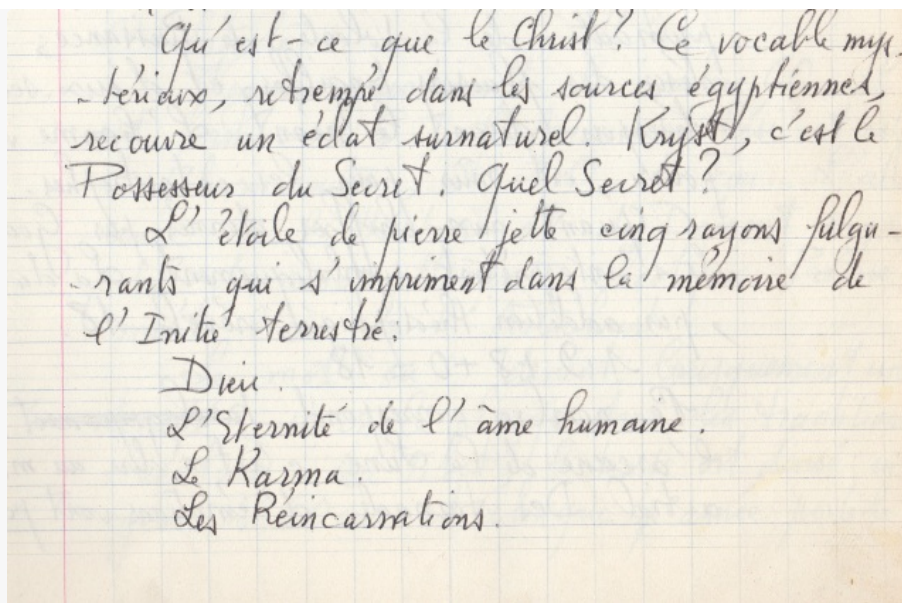 Qu'est-ce que le Christ? Ce vocable mys-
-térieux, retrempé dans les sources égyptiennes,
recouvre un éclat surnaturel. Kryst, c'est le
Possesseur du Secret. Quel Secret?
L'étoile de pierre jette cinq rayons fulgu-
-rants qui s'impriment dans la mémoire de
l'Initié terrestre:
Dieu.
L'Eternité de l'âme humaine.
Le Karma.
Les Réincarnations.